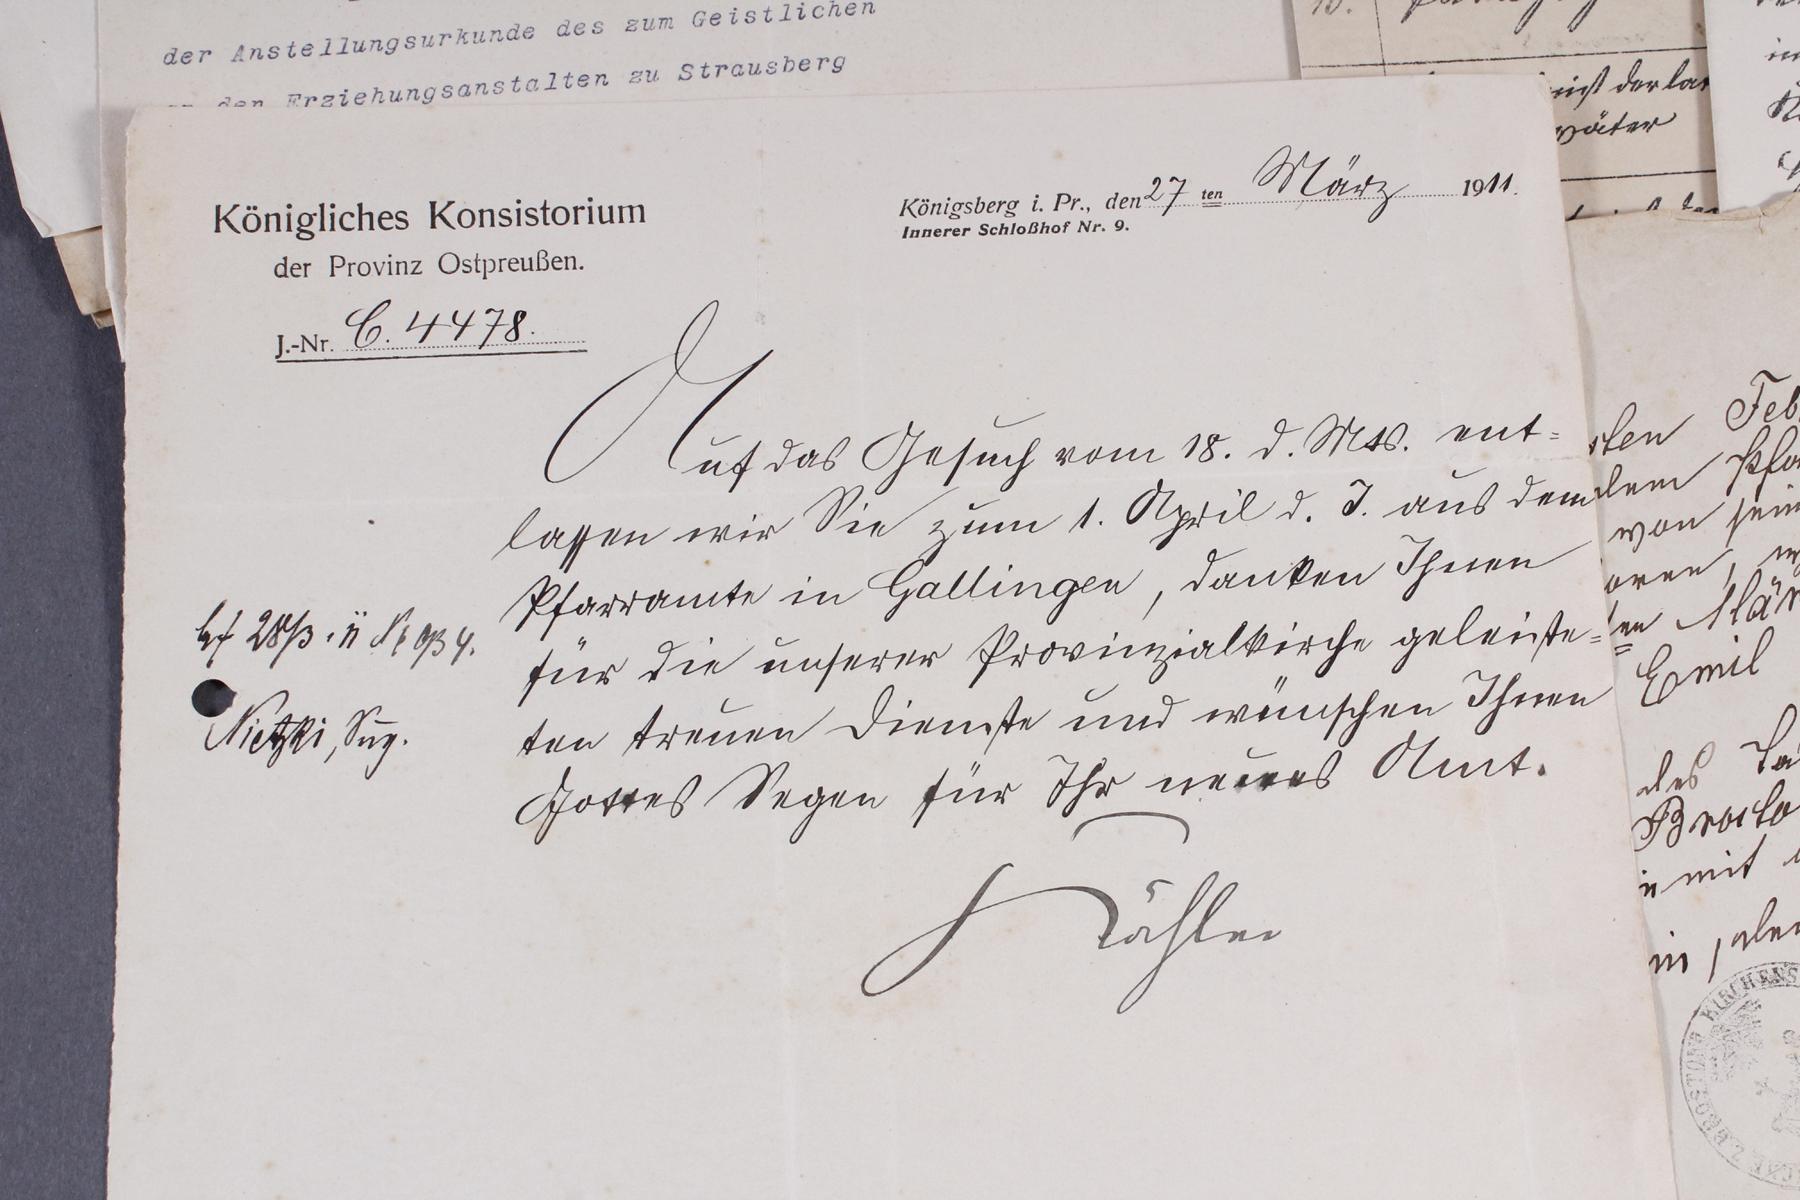 der Anstellungsurkunde des zum Geistlichen
an den Erziehungsanstalten zu Strausberg
Königliches Konsistorium
der Provinz Ostpreußen.
J.-Nr. C. 4478.
Königsberg i. Pr., den 27 ten März 1911.
Innerer Schloßhof Nr. 9.
Auf das Gesuch vom 18. d. Mts. ent=
lassen wir Sie zum 1. April d. J. aus dem
Pfarramte in Gallingen, danken Ihnen
für die unserer Provinzialkirche geleiste=
ten treuen Dienste und wünschen Ihnen
Gottes Segen für Ihr neues Amt.
Kähler
28/3.
Nietzki, Sup.
der
väter
Feb
dem Pfa
von sein
Mär
Emil
des
mit
in, den
KIRCHENS